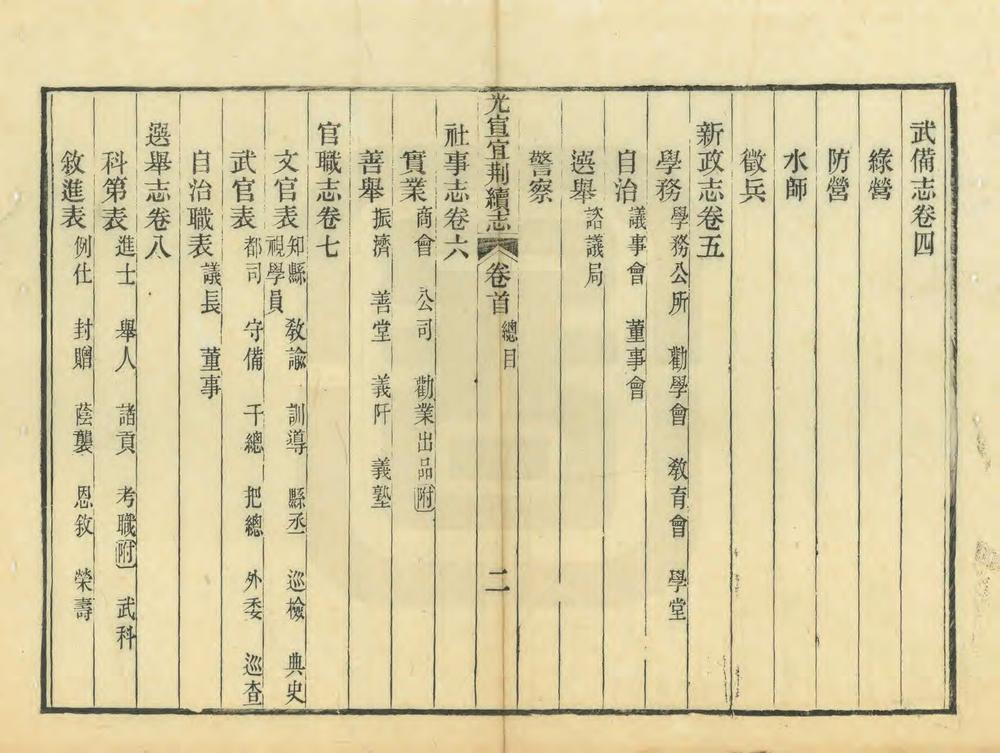 武備志卷四
綠營
防營
水師
徵兵
新政志卷五
學務 學務公所 勸學會 敎育會 學堂
自治 議事會 董事會
選舉 諮議局
警察
光宣宜荆續志 卷首 總目 二
社事志卷六
實業 商會 公司 勸業出品附
善舉 振濟 善堂 義阡 義塾
官職志卷七
文官表 知縣 敎諭 訓導 縣丞 巡檢 典史 視學員
武官表 都司 守備 千總 把總 外委 巡查
自治職表 議長 董事
選舉志卷八
科第表 進士 舉人 諸貢 考職附 武科
敘進表 例仕 封贈 蔭襲 恩敘 榮壽